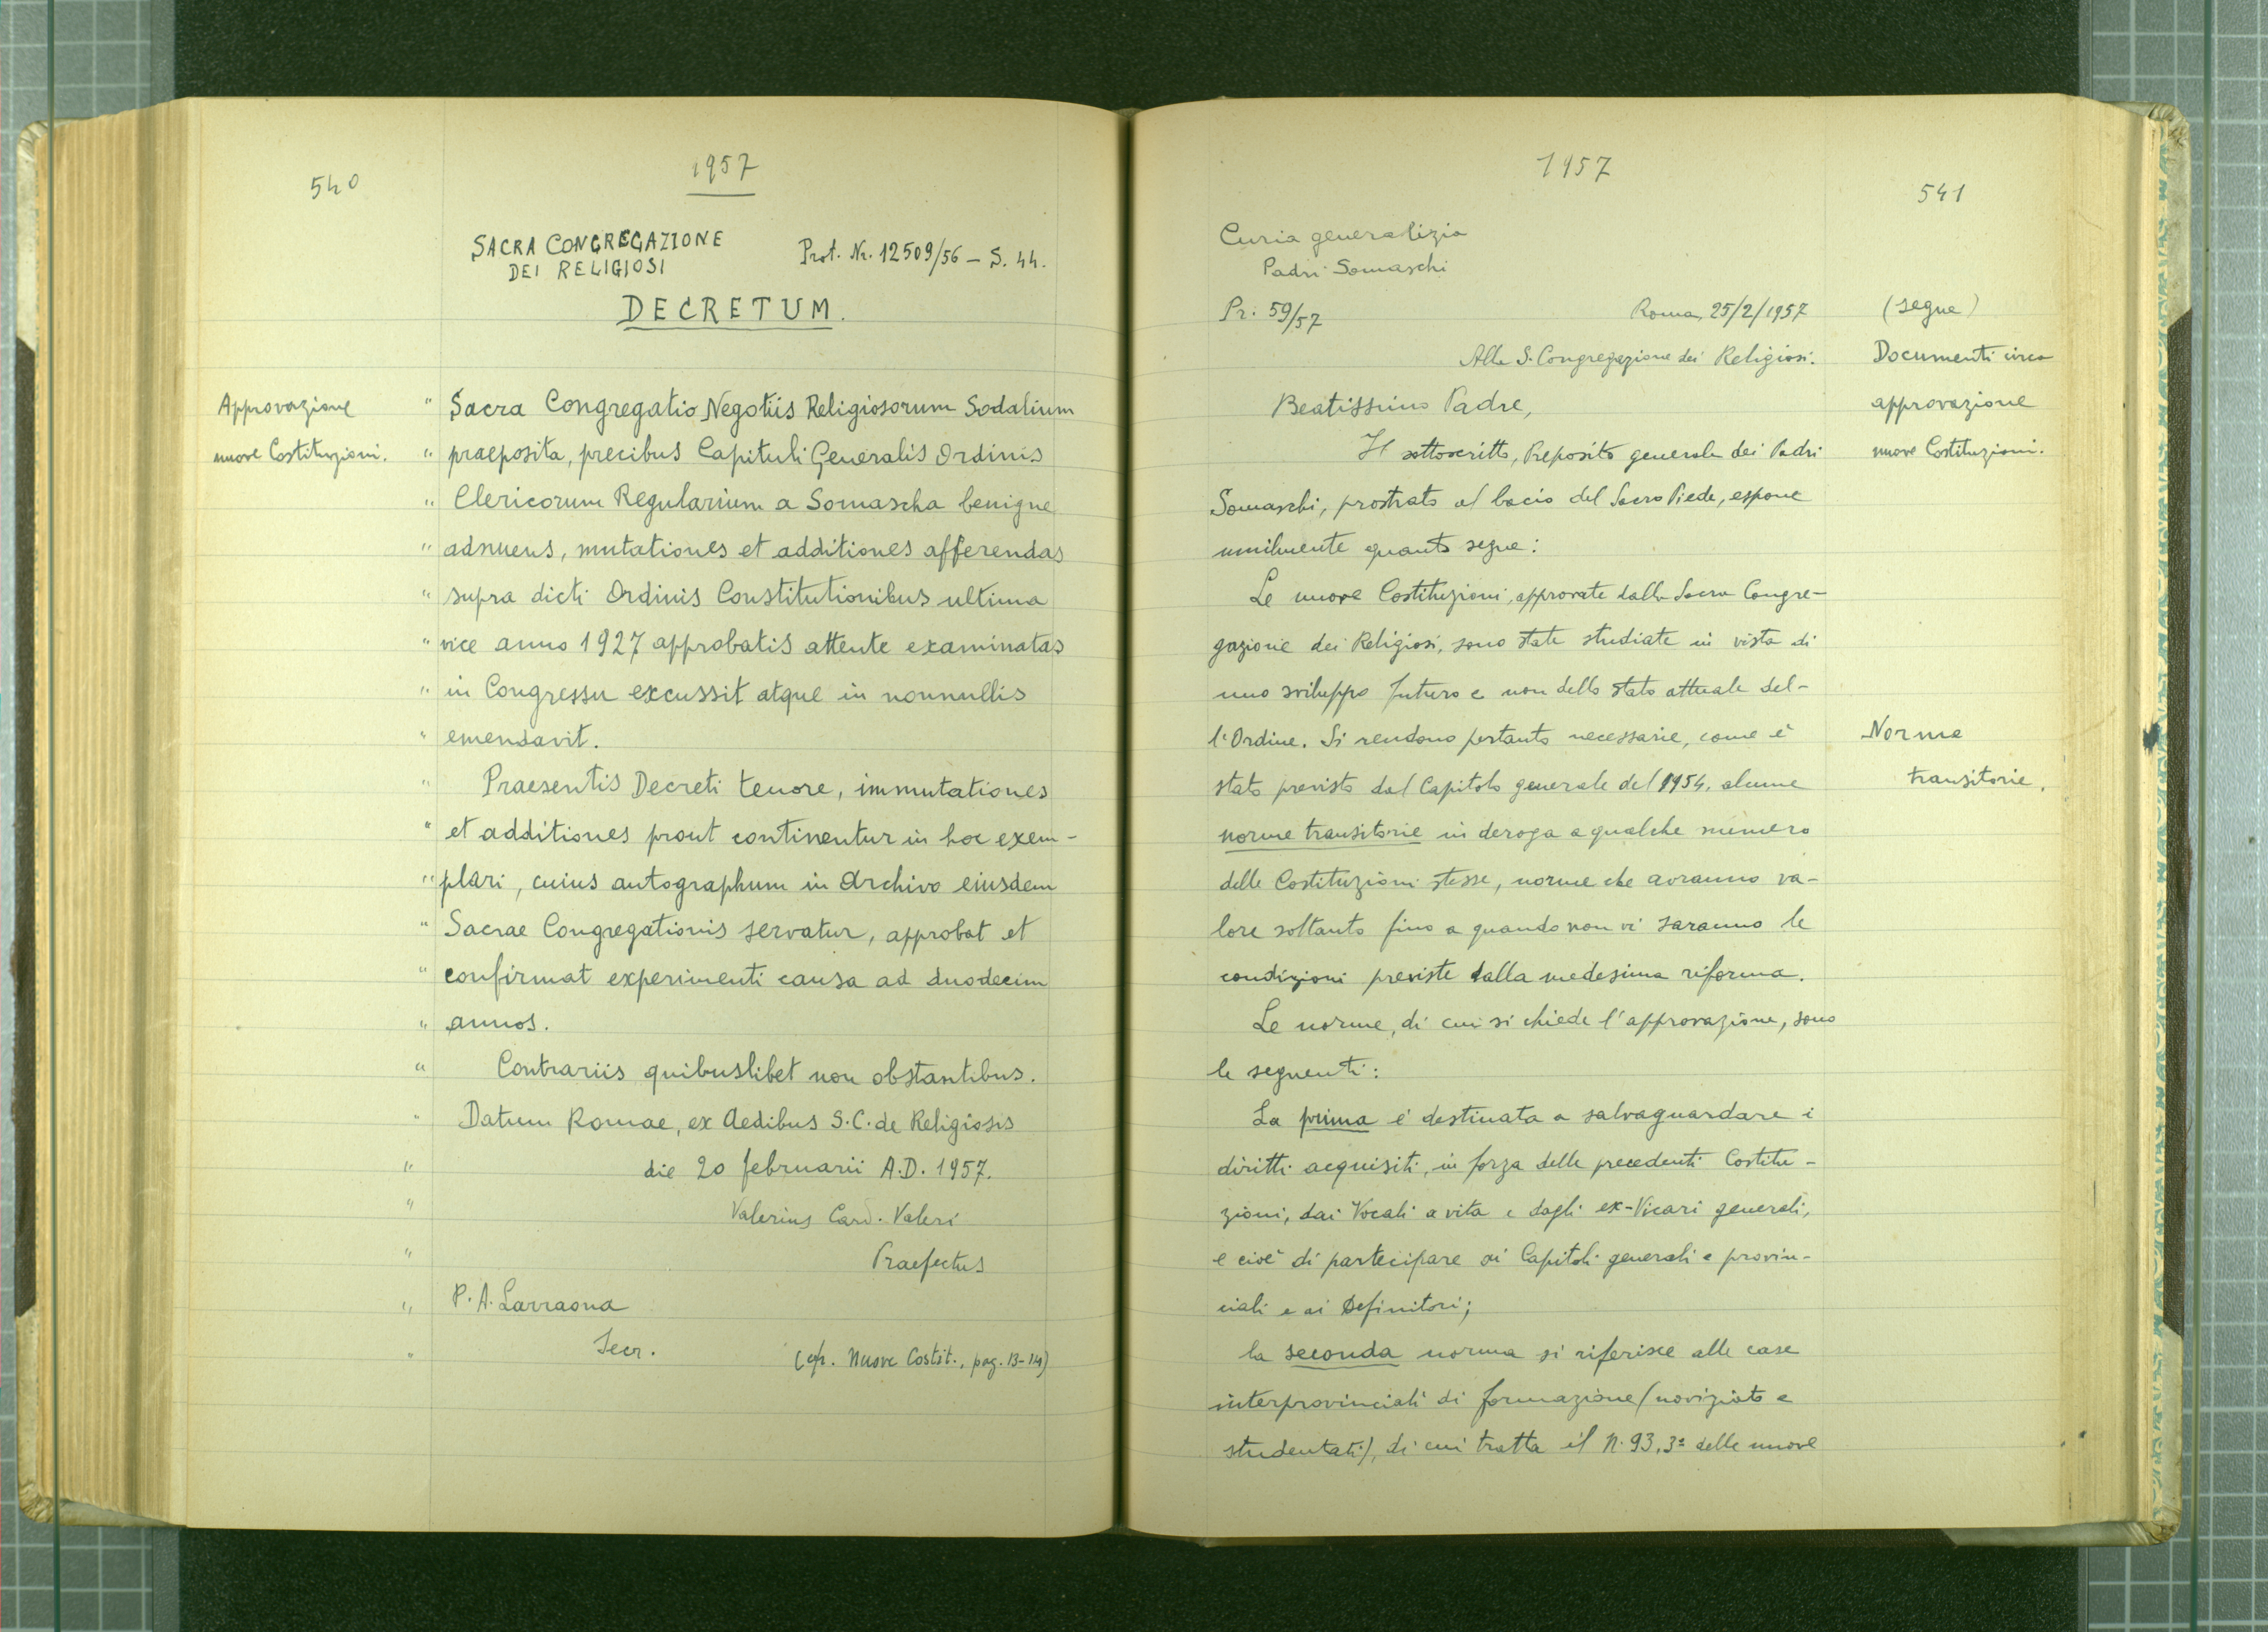 540
1957
SACRA CONGREGAZIONE
DEI RELIGIOSI
Prot. Nr. 12509/56 – S. 44.
DECRETUM.
Approvazione
nuove Costituzioni.
" Sacra Congregatio Negotiis Religiosorum Sodalium
" praeposita, precibus Capituli Generalis Ordinis
" Clericorum Regularium a Somascha benigne
" adnuens, mutationes et additiones afferendas
" supra dicti Ordinis Constitutionibus ultima
" vice anno 1927 approbatis attente examinatas
" in Congressu excussit atque in nonnullis
" emendavit.
" Praesentis Decreti tenore, immutationes
" et additiones prout continentur in hoc exem-
" plari, cuius autographum in Archivo eiusdem
" Sacrae Congregationis servatur, approbat et
" confirmat experimenti causa ad duodecim
" annos.
" Contrariis quibuslibet non obstantibus.
" Datum Romae, ex Aedibus S.C. de Religiosis
" die 20 februarii A.D. 1957.
" Valerius Card. Valeri
" Praefectus
" P. A. Larraona
" Secr.
(cfr. Nuove Costit., pag. 13-14)
1957
541
Curia generalizia
Padri Somaschi
Pr: 59/57
Roma, 25/2/1957
(segue)
Documenti circa
approvazione
nuove Costituzioni.
Alla S. Congregazione dei Religiosi.
Beatissimo Padre,
Il sottoscritto, Preposito generale dei Padri
Somaschi, prostrato al bacio del Sacro Piede, espone
umilmente quanto segue:
Le nuove Costituzioni, approvate dalla Sacra Congre-
gazione dei Religiosi, sono state studiate in vista di
uno sviluppo futuro e non dello stato attuale del-
l'Ordine. Si rendono pertanto necessarie, come è
stato previsto dal Capitolo generale del 1954, alcune
norme transitorie in deroga a qualche numero
delle Costituzioni stesse, norme che avranno va-
lore soltanto fino a quando non vi saranno le
condizioni previste dalla medesima riforma.
Norme
transitorie.
Le norme, di cui si chiede l'approvazione, sono
le seguenti:
La prima è destinata a salvaguardare i
diritti acquisiti, in forza delle precedenti Costitu-
zioni, dai Vocali a vita e dagli ex-Vicari generali,
e cioè di partecipare ai Capitoli generali e provin-
ciali e ai Definitori;
la seconda norma si riferisce alle case
interprovinciali di formazione (noviziato e
studentati), di cui tratta il N. 93, 3º delle nuove